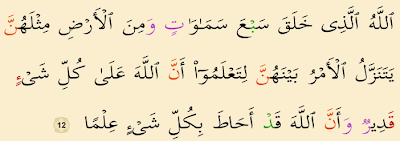 ٱللَّهُ ٱلَّذِى خَلَقَ سَبْعَ سَمَـٰوَٰتٍ وَمِنَ ٱلْأَرْضِ مِثْلَهُنَّ
يَتَنَزَّلُ ٱلْأَمْرُ بَيْنَهُنَّ لِتَعْلَمُوٓا۟ أَنَّ ٱللَّهَ عَلَىٰ كُلِّ شَىْءٍ
قَدِيرٌ وَأَنَّ ٱللَّهَ قَدْ أَحَاطَ بِكُلِّ شَىْءٍ عِلْمًۢا 12